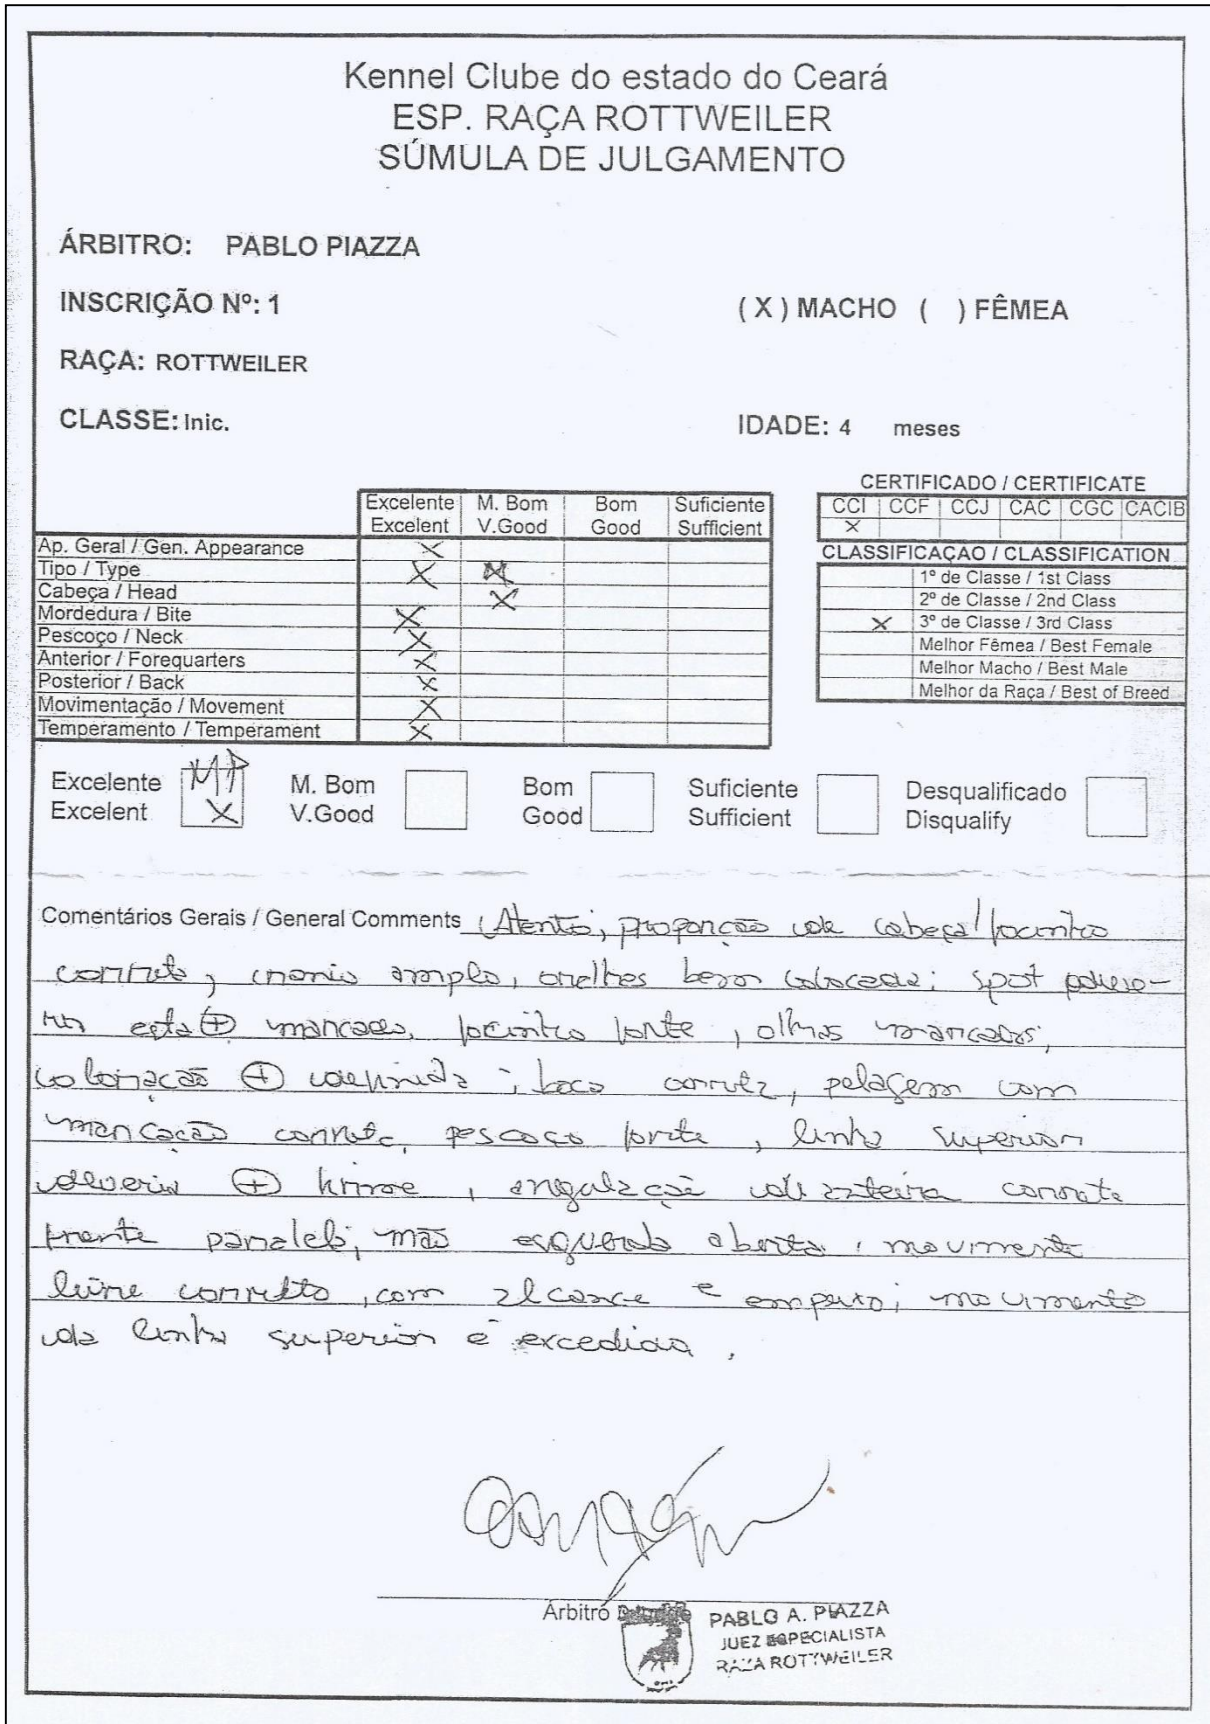 Kennel Clube do estado do Ceará
ESP. RAÇA ROTTWEILER
SÚMULA DE JULGAMENTO
ÁRBITRO: PABLO PIAZZA
INSCRIÇÃO Nº: 1 ( X ) MACHO ( ) FÊMEA
RAÇA: ROTTWEILER
CLASSE: Inic. IDADE: 4 meses
CERTIFICADO / CERTIFICATE
Excelente M. Bom Bom Suficiente
Excelent V.Good Good Sufficient
CCI CCF CCJ CAC CGC CACIB
X
Ap. Geral / Gen. Appearance X
Tipo / Type X
Cabeça / Head X
Mordedura / Bite X
Pescoço / Neck X
Anterior / Forequarters X
Posterior / Back X
Movimentação / Movement X
Temperamento / Temperament X
CLASSIFICAÇAO / CLASSIFICATION
1º de Classe / 1st Class
2º de Classe / 2nd Class
X 3º de Classe / 3rd Class
Melhor Fêmea / Best Female
Melhor Macho / Best Male
Melhor da Raça / Best of Breed
Excelente MP M. Bom Bom Suficiente Desqualificado
Excelent X V.Good Good Sufficient Disqualify
Comentários Gerais / General Comments Atento, proporção de cabeça/focinho
correta, cranio amplo, orelhas bem colocada; spot
esta + marcado, focinho forte, olhos marcados,
coloração + definida; boca correta, pelagem com
marcação correta, pescoço forte, linha superior
deveria + firme, angulação dianteira correta
frente paralela, mão esquerda aberta, movimento
livre correto, com alcance e empuxo; movimento
da linha superior é excedida.
Árbitro
PABLO A. PIAZZA
JUEZ ESPECIALISTA
RAZA ROTTWEILER